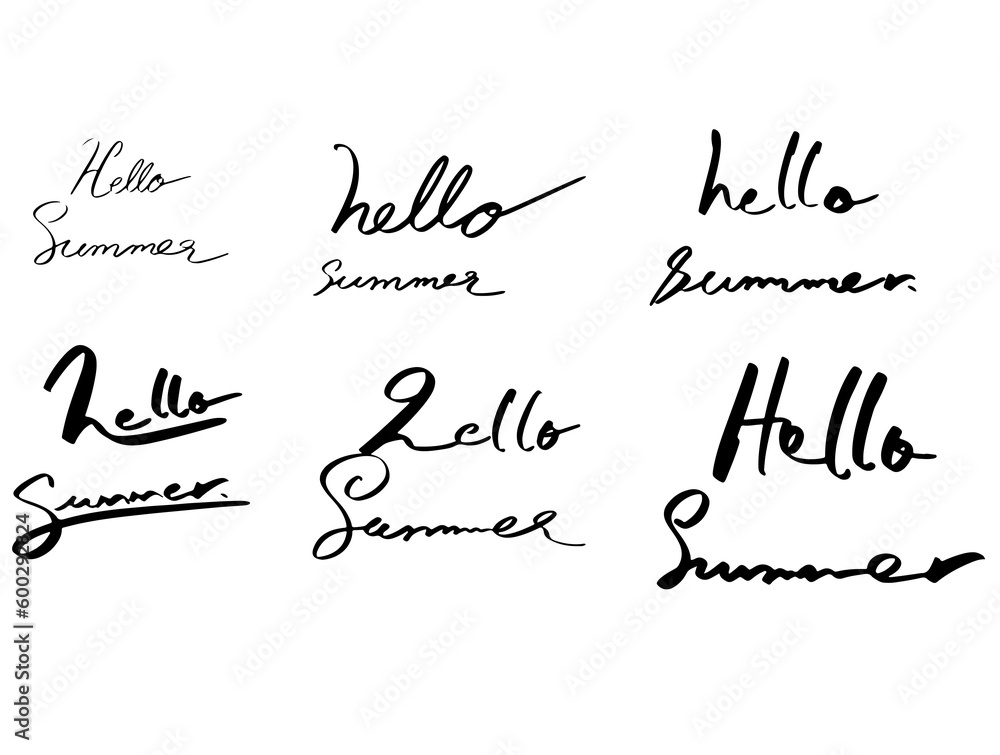 Hello
Summer
hello
Summer
hello
Summer.
hello
Summer.
hello
Summer
Hello
Summer
Adobe Stock | #600292824